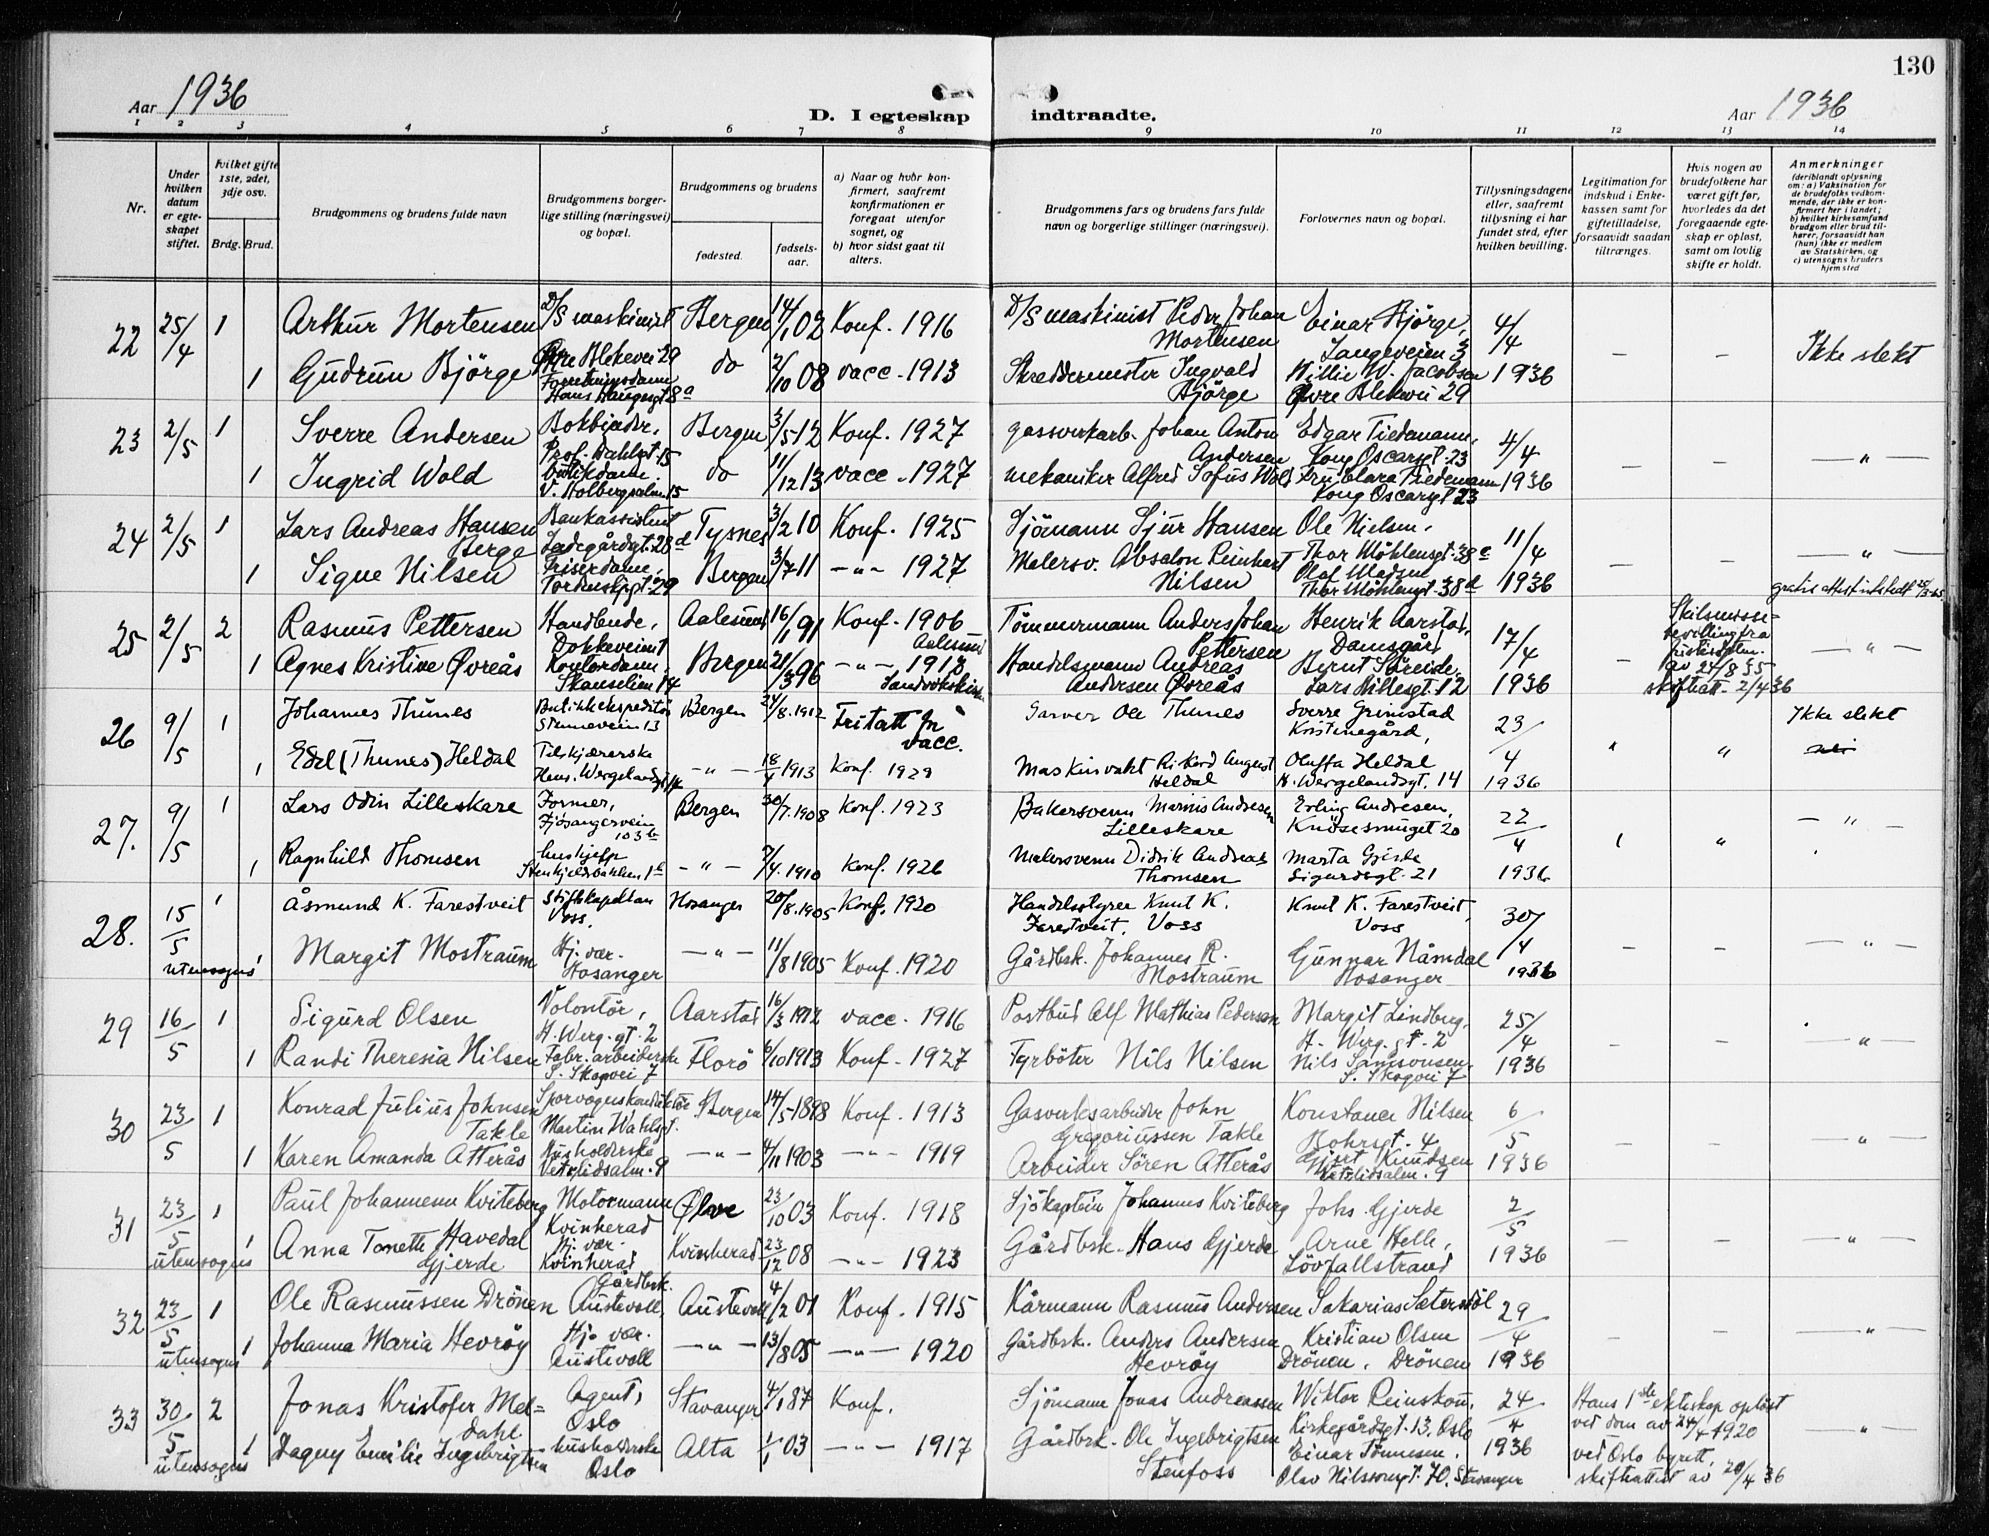 130
Aar 1936
D. I egteskap indtraadte.
Aar 1936
1 2 3 4 5 6 7 8 9 10 11 12 13 14
Nr.
Under hvilken datum er egteskapet stiftet.
hvilket gifte 1ste, 2det, 3dje osv.
Brdg. Brud.
Brudgommens og brudens fulde navn
Brudgommens borgerlige stilling (næringsvei) og bopæl.
Brudgommens og brudens
fødested.
fødselsaar.
a) Naar og hvor konfirmert, saafremt konfirmationen er foregaat utenfor sognet, og
b) hvor sidst gaat til alters.
Brudgommens fars og brudens fars fulde navn og borgerlige stillinger (næringsvei).
Forlovernes navn og bopæl.
Tillysningsdagene eller, saafremt tillysning ei har fundet sted, efter hvilken bevilling.
Legitimation for indskud i Enkekassen samt for giftetilladelse, forsaavidt saadan tiltrænges.
Hvis nogen av brudefolkene har været gift før, hvorledes da det foregaaende egteskap er opløst, samt om lovlig skifte er holdt.
Anmerkninger (deriblandt oplysning om: a) Vaksination for de brudefolks vedkommende, der ikke er konfirmert her i landet; b) hvilket kirkesamfund brudgom eller brud tilhører, forsaavidt han (hun) ikke er medlem av Statskirken, og c) utensogns bruders hjemsted
22 25/4 1 Arthur Mortensen D/S maskinist Øvre Blekevei 29 Bergen 14/1 02 Konf. 1916 D/S maskinist Peder Johan Mortensen Einar Bjørge, Langeveien 3 4/4 1936 – – Ikke slekt
1 Gudrun Bjørge Forretningsdame Hans Haugesgt 8a do 2/10 08 vacc. 1913 Skreddermester Ingvald Bjørge Willie W. Jacobsen Øvre Blekevei 29
23 2/5 1 Sverre Andersen Bokbinder, Prof. Dahlsgt. 15 Bergen 3/5 12 Konf. 1927 gassverkarb. Johan Anton Andersen Edgar Tiedemann, Kong Oscarsgt. 23 4/4 1936 – – — " —
1 Ingrid Wold butikdame V. Holbergsalm. 15 do 11/12 13 vacc. 1927 mekaniker Alfred Sofus Wold Fru Clara Tiedemann Kong Oscarsgt 23
24 2/5 1 Lars Andreas Hansen Berge Bankassistent Ladegårdsgt. 28d Tysnes 3/2 10 Konf. 1925 Sjömann Sjur Hansen Ole Nielsen, Thor Möhlensgt. 38c 11/4 1936 – – — " —
1 Signe Nilsen Friserdame, Tordenskjgt. 29 Bergen 3/7 11 —"— 1927 Malersv. Absalon Reinhart Nilsen Olaf Madsen Thor Möhlengt 38d
gratis attest utstedt
25 2/5 2 Rasmus Pettersen Handlende, Dokkeveien Aalesund 16/1 91 Konf. 1906 Aalesund Tömmermann Anders Johan Pettersen Henrik Aarstad, Damsgård 17/4 1936 – Skilsmisse-bevilling fra av 24/8 35 skifteatt. 2/4 36 — " —
1 Agnes Kristine Øvreås Kontordame, Skanselien 14 Bergen 21/3 96 —"— 1913 Sandvikskirken Handelsmann Andreas Andersen Øvreås Bernt Søreide, Lars Hillesgt. 12
26 9/5 1 Johannes Thunes Butikkekspeditør Stemmeveien 13 Bergen 24/8. 1912 Fritatt for vacc. Garver Ole Thunes Sverre Grimstad Kristinegård, 23/4 1936 " " Ikke slekt
1 Edel (Thunes) Heldal Tilskjærerske Hen. Wergelandsgt 14 —"— 18/4 1913 Konf. 1929 Maskinvakt Rikard August Heldal Oluffa Heldal H. Wergelandsgt. 14
27. 9/5 1 Lars Odin Lilleskare Former, Fjøsangervein 103b Bergen 30/7. 1908 Konf. 1923 Bakersvenn Marinis Andresen Lilleskare Erling Andresen, Knøsesmuget 20 22/4 1936 " — " —
1 Ragnhild Thomsen hushjelp Stenkjeldbakken 1c —"— 7/4. 1910 Konf. 1926 Malersvenn Didrik Andreas Thomsen Marta Gjerde Sigurdsgt. 21
28. 15/5 utensogns 1 Åsmund K. Farestveit Stiftskapellan Voss. Hosanger 20/8. 1905 Konf. 1920 Handelsstyrer Knut K. Farestveit. Voss Knut K. Farestveit, Voss 30/4 1936 – – — " —
1 Margit Mostraum Hj. vær. Hosanger —"— 11/8 1905 Konf. 1920 Gårdbrk. Johannes R. Mostraum Gunnar Nåmdal Hosanger
29 16/5 1 Sigurd Olsen Volontör, H. Werg. gt. 2 Aarstad 16/3 1912 vacc. 1916 Postbud Alf Mathias Pedersen Margit Lindberg, H. Werg. gt. 2 25/4 1936 – – — " —
1 Randi Theresia Nilsen Fabr. arbeiderske S. Skogvei 7 Florö 6/10 1913 Konf. 1927 Fyrböter Nils Nilsen Nils Samsonsen S. Skogvei 7
30 23/5 1 Konrad Julius Johnsen Takle Sporvognskonduktør Martin Wahlsgt. Bergen 14/5 1898 Konf. 1913 Gasverksarbeider John Gregoriussen Takle Konstance Nilsen Bohrsgt. 4 6/5 1936 – – — " —
1 Karen Amanda Atterås Husholderske Vetrlidsalm. 9 —"— 4/11 1903 —"— 1919 Arbeider Sören Atterås Gjert Knudsen Vetrlidsalm. 9
31 23/5 utensogns 1 Paul Johannenn Kviteberg Motormann Kvinherad Ølve 23/10 03 Konf. 1918 Sjökaptein Johannes Kviteberg Johs. Gjerde 2/5 1936 – – — " —
1 Anna Tonette Havedal Gjerde Hj. vær. Kvinherad Kvinherad 23/12 08 —"— 1923 Gårdbrk. Hans Gjerde Arne Helle, Lövfallstrand
32 23/5 utensogns 1 Ole Rasmussen Drönen Gårdbrk. Austevoll, Austevoll 4/2 01 Konf. 1915 Kårmann Rasmus Andersen Sakarias Sæterstöl 29/4 1936 – – — " —
1 Johanna Maria Hevröy Hj. vær. Austevoll —"— 13/8 05 —"— 1920 Gårdbrk. Anders Andersen Hevröy Kristian Olsen Drönen, Drönen
33 30/5 utensogns 2 Jonas Kristofer Mel-dahl Agent, Oslo Stavanger 4/1 87 Konf. Sjömann Jonas Andreassen Wiktor Reinskou, Kirkegårdsgt. 13. Oslo 24/4 1936 Hans 1ste ekteskap oplöst ved dom av 24/4 1920 ved Oslo byrett, skifteattest av 20/4 36 — " —
1 Dagny Emilie Ingebrigtsen husholderske Oslo Alta 1/1 03 —"— 1917 Gårdbrk. Ole Ingebrigtsen Stenfoss Einar Tönnesen, Olav Nilssonsgt. 70. Stavanger